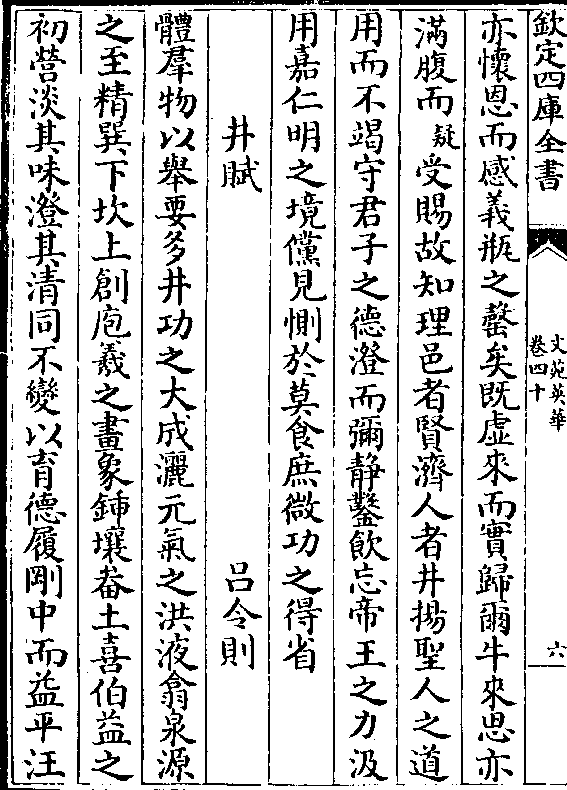 欽定四庫全書
文苑英華
卷四十
六
亦懷恩而感義瓶之罄矣既虛來而實歸爾牛來思亦
滿腹而疑受賜故知理邑者賢濟人者井揚聖人之道
用而不竭守君子之德澄而彌靜鑿飲忘帝王之力汲
用嘉仁明之境儻見惻於莫食庶微功之得省
井賦 吕令則
體羣物以舉要多井功之大成灑元氣之洪液翕泉源
之至精巽下坎上創庖羲之畫象鍤壤畚土喜伯益之
初營淡其味澄其清同不變以育德履剛中而益平汪